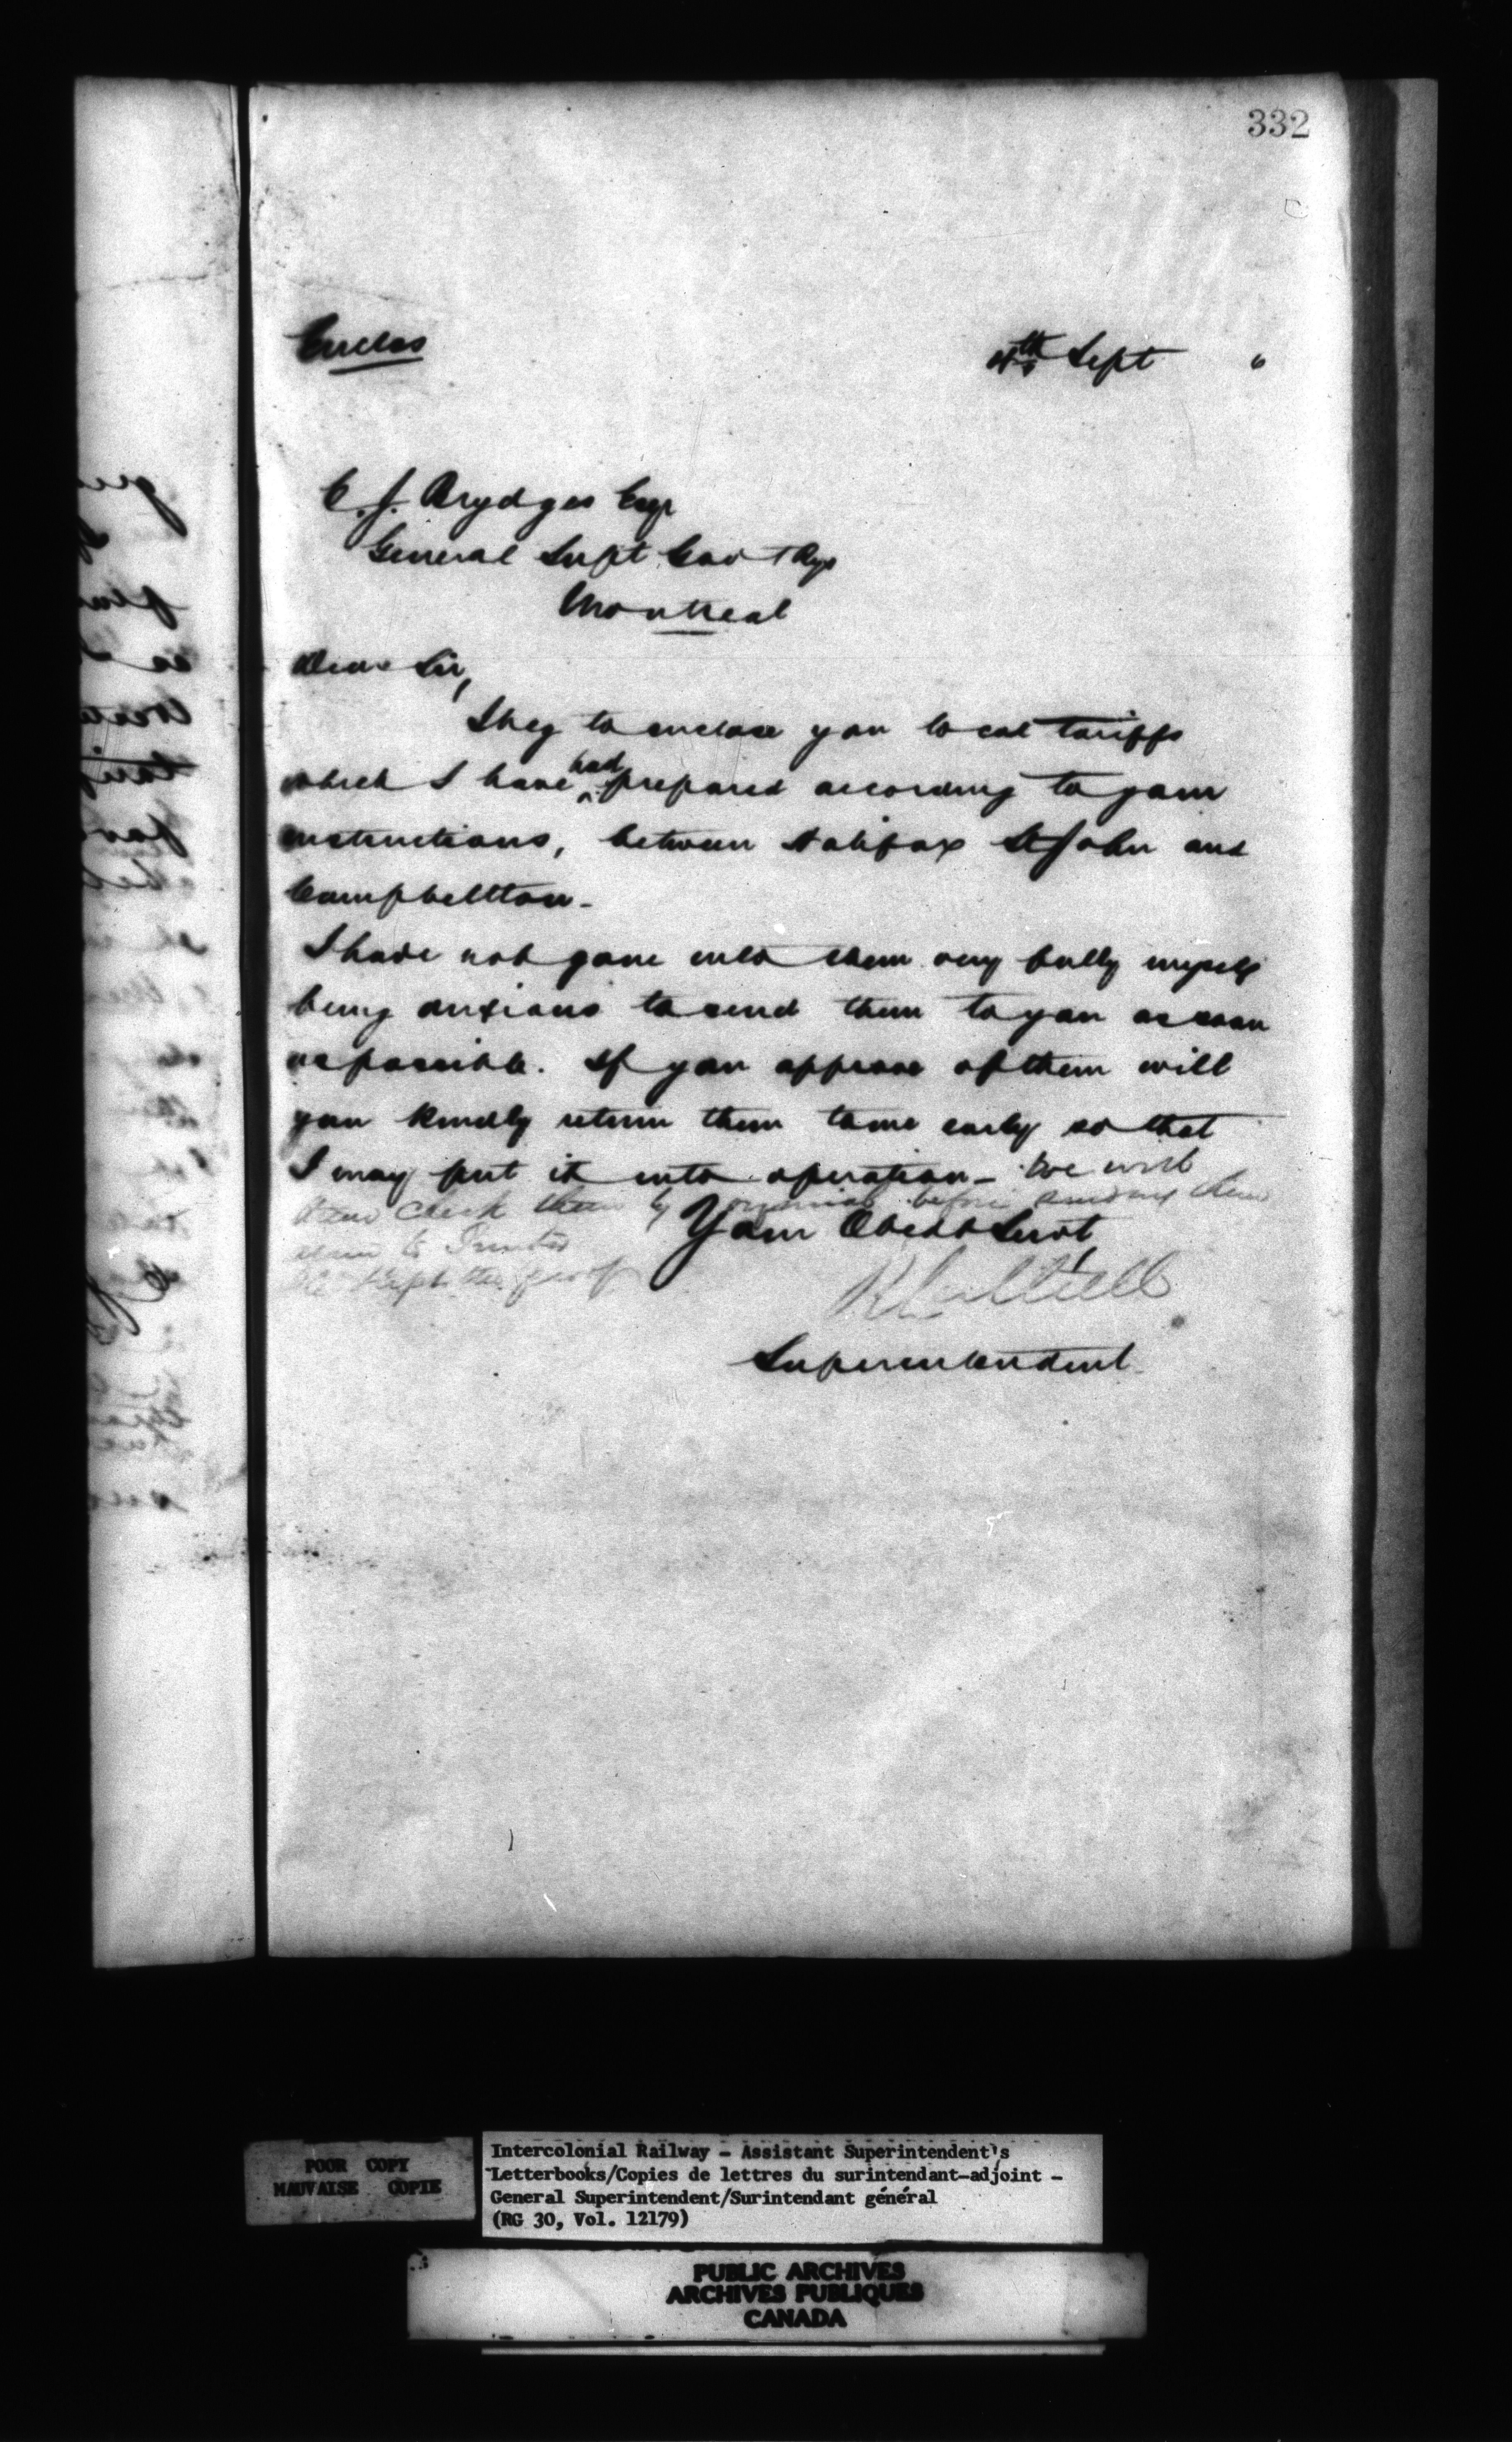 332
Enclos
4th Sept 6
C. J. Brydges Esqr
General Supt Govt Rys
Montreal
Dear Sir,
I beg to enclose you local tariffs
which I have had prepared according to your
instructions, between Halifax St John and
Campbellton.
I have not gone into them very fully myself
being anxious to send them to you as soon
as possible. If you approve of them will
you kindly return them to me early so that
I may put it into operation - We will
check them by original before sending them
to Printer
kept the proof
Your Obedt Servt
Superintendent
POOR COPY
MAUVAISE COPIE
Intercolonial Railway - Assistant Superintendent's
Letterbooks/Copies de lettres du surintendant-adjoint -
General Superintendent/Surintendant général
(RG 30, Vol. 12179)
PUBLIC ARCHIVES
ARCHIVES PUBLIQUES
CANADA